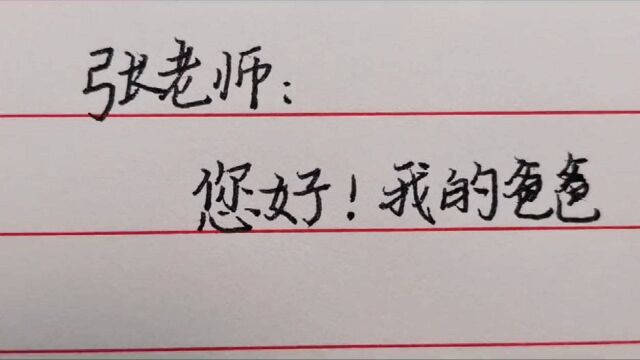 张老师：
您好！我的爸爸